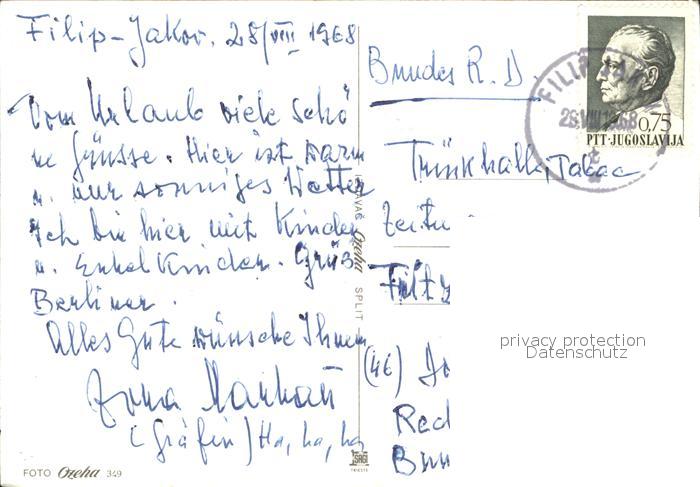 Filip-Jakov. 28/VIII 1968
Vom Urlaub viele schö
ne Grüsse. Hier ist warm
u. nur sonniges Wetter
Ich bin hier mit Kinder
u. Enkelkinder. Grüs
Berliner.
Alles Gute wünsche Ihnen
(Gräfin) Ha, ha, ha
FOTO Ozeha 349
Ozeha SPLIT
Bundes R. D.
FILIP JAK
28.VIII.1968
0,75
PTT·JUGOSLAVIJA
Trinkhalle, Tabac
Zeitu
Fritz
(46) Do
Red
Bun
privacy protection
Datenschutz